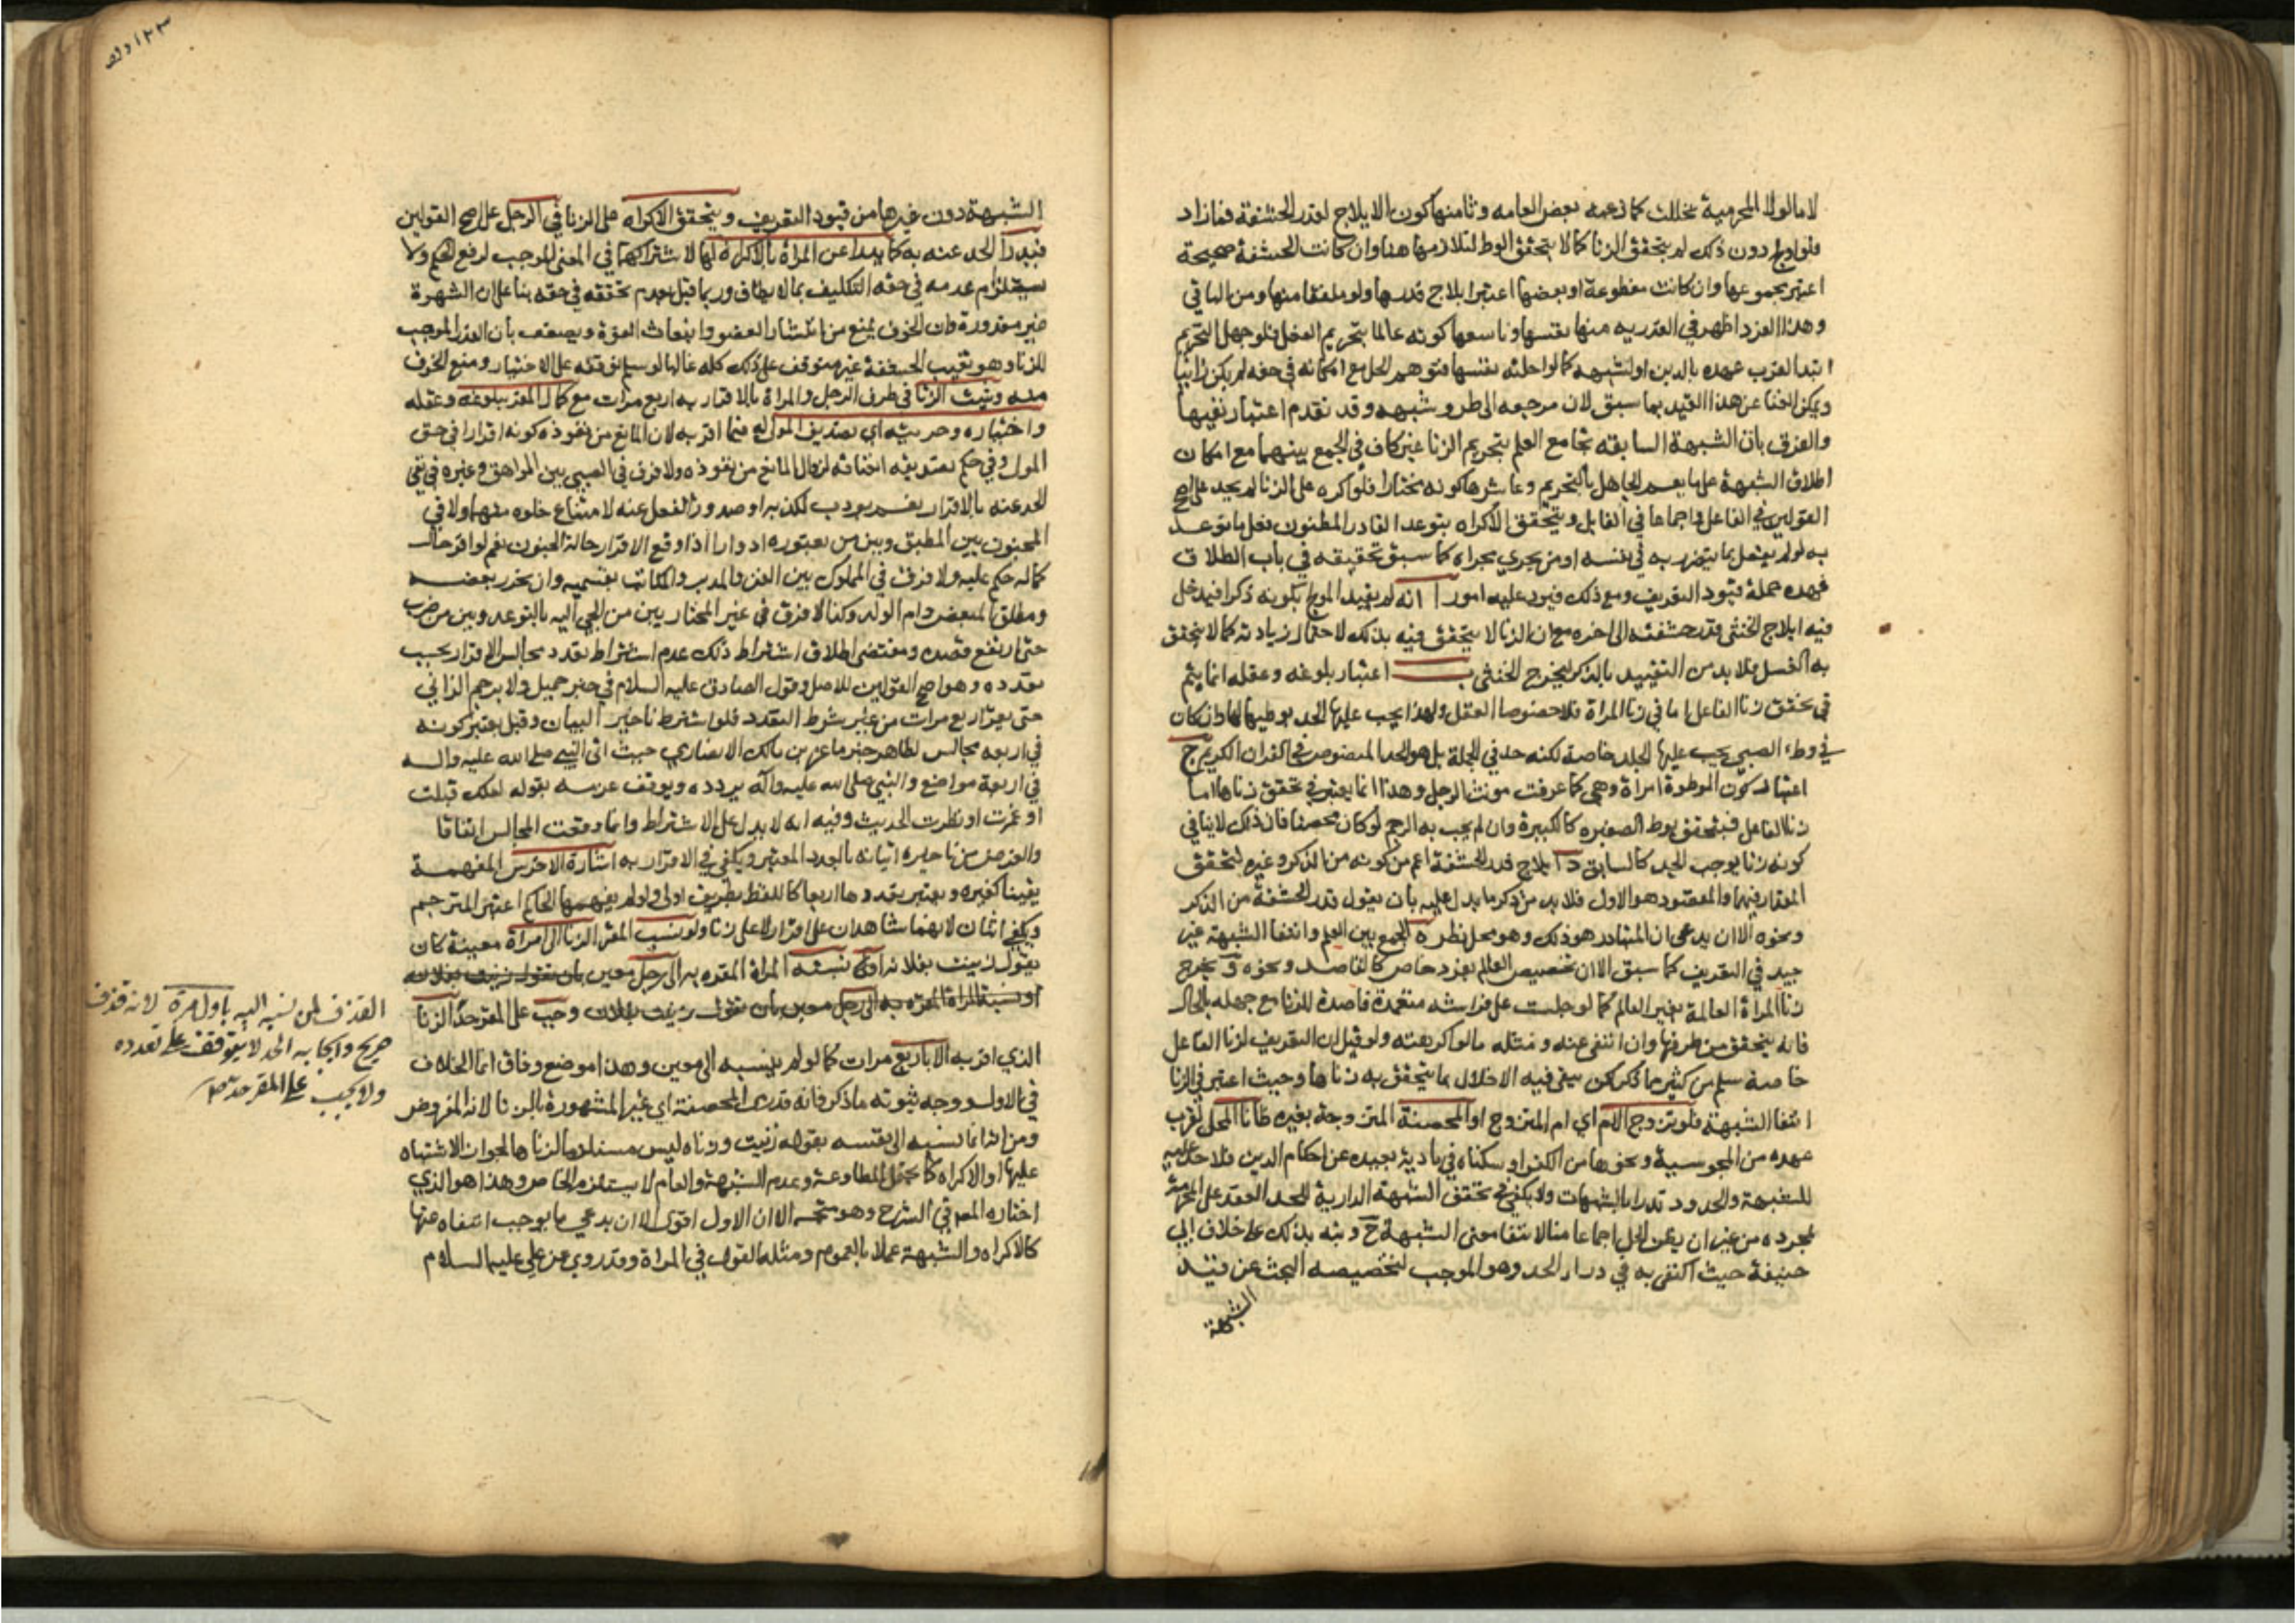 لاصالة لا المحرمية بذلك كما زعمه بعض العامه وثامنها كون الايلاج بقدر الحشفة فمازاد
فلو اولج دون ذلك لم يتحقق الزنا كما لا يتحقق الوطء لتلازمهما هنا وان كانت الحشفة صحيحة
اعتبر مجموعها وان كانت مقطوعة او بعضها اعتبر ايلاج قدرها ولو ملفقا منها ومن الباقي
وهذا الفرد اظهر في القدرية منها نفسها وتاسعها كونه عالما بتحريم الفعل فلو جهل التحريم
ابتدا لقرب عهده بالدين او لشبهه كما لو احلته نفسها فتوهم الحل مع امكانه في حقه لم يكن زانيا
ويمكن الغنا عن هذا القيد بما سبق لان مرجعه الى طرو شبهه وقد تقدم اعتبار نفيها
والفرق بان الشبهة السابقه تجامع العلم بتحريم الزنا غير كاف في الجمع بينهما مع امكان
اطلاق الشبهة على ما يعم الجاهل بالتحريم وعاشرها كونه مختارا فلو اكره على الزنا لم يحد على اصح
القولين في الفاعل واجماعا في القابل ويتحقق الاكراه بتوعد القادر المظنون فعل ما توعد
به لو لم يفعل بما يتضرر به في نفسه او من يجري مجراه كما سبق تحقيقه في باب الطلاق
فهذه جملة قيود التعريف ومع ذلك فيرد عليه امور ا انه لم يقيد المولج بكونه ذكرا فيدخل
فيه ايلاج الخنثى قدر حشفته الى اخره مع ان الزنا لا يتحقق فيه بذلك لاحتمال زيادته كما لا يتحقق
به الغسل فلا بد من التقييد بالذكر ليخرج الخنثى ب اعتبار بلوغه وعقله انما يتم
في تحقق زنا الفاعل اما في زنا المراة فلا خصوصا العقل ولهذا يجب عليها الحد بوطيهما لها وان كان
في وطء الصبي يجب عليها الجلد خاصة لكنه حد في الجملة بل هو الحد المنصوص في القران الكريم ج
اعتبار كون الموطوة امراة وهي كما عرفت مونث الرجل وهذا انما يعتبر في تحقق زناها اما
زنا الفاعل فيتحقق بوطء الصغيره كالكبيرة وان لم يجب به الرجم لو كان محصنا فان ذلك لا ينافي
كونه زنا يوجب الحد كالسابق د ايلاج قدر الحشفة اعم من كونه من الذكر وغيره لتحقق
المقدار فيهما والمقصود هو الاول فلا بد من ذكر ما يدل عليه بان يقول قدر الحشفة من الذكر
ونحوه الا ان يدعى ان المتبادر هو ذلك وهو محل نظر ه الجمع بين العلم وانتفا الشبهة غير
جيد في التعريف كما سبق الا ان تخصيص العالم بفرد خاص كالقاصد ونحوه و يخرج
زنا المراة العالمة بغير العالم كما لو جلست على فراشه متعمدة قاصدة للزنا مع جهله بالحال
فانه يتحقق من طرفها وان انتفى عنه ومثله مالو اكرهته ولو قيل ان التعريف لزنا الفاعل
خاصة سلم من كثير مما ذكر لكن يبقى فيه الاخلال بما يتحقق به زناها وحيث اعتبر في الزنا
انتفا الشبهة فلو تزوج الام اي ام المتزوج او المحصنة المتزوجة بغيره ظانا الحل لقرب
عهده من المجوسية ونحوها من الكفر او سكناه في بادية بعيده عن احكام الدين فلا حد عليه
للشبهة والحدود تدرا بالشبهات ولا يكفي في تحقق الشبهة الدارية للحد العقد على المحرمة
بمجرده من غير ان يظن الحل اجماعا منا لانتفا معنى الشبهة ح ونبه بذلك على خلاف ابي
حنيفة حيث اكتفى به في درا الحد وهو الموجب لتخصيصه البحث عن قيد
الشبهة
الشبهة دون غيرها من قيود التعريف ويتحقق الاكراه على الزنا في الرجل على اصح القولين
فيدرا الحد عنه به كما يدرا عن المراة بالاكراه لها لاشتراكهما في المعنى الموجب لرفع الحكم ولا
ستلزام عدمه في حقه التكليف بما لا يطاق وربما قيل بعدم تحققه في حقه بنا على ان الشهوة
غير مقدورة وان الخوف يمنع من انتشار العضو وانبعاث القوة ويضعف بان القدر الموجب
للزنا وهو تغيب الحشفة غير متوقف على ذلك كله غالبا لو سلم توقفه على الاختيار ومنع الخوف
منه ويثبت الزنا في طرف الرجل والمراة بالاقرار به اربع مرات مع كمال المقر ببلوغه وعقله
واختياره وحريته اي تصديق المولى له فيما اقر به لان المانع من نفوذه كونه اقرارا في حق
المولى وفي حكم تصديقه انعتاقه لزوال المانع من نفوذه ولا فرق في الصبي بين المراهق وغيره في نفي
الحد عنه بالاقرار نعم يودب لكذبه او صدور الفعل عنه لامتناع خلوه منهما ولا في
المجنون بين المطبق وبين من يعتوره ادوارا اذا وقع الاقرار حالة الجنون نعم لو اقر حال
كماله حكم عليه ولا فرق في المملوك بين القن والمدبر والمكاتب بقسميه وان تحرر بعضه
ومطلق المبعض وام الولد وكذا لا فرق في غير المختار بين من الجي اليه بالتوعد وبين من ضرب
حتى ارتفع قصده ومقتضى اطلاق اشتراط ذلك عدم اشتراط تعدد مجالس الاقرار بحسب
تعدده وهو اصح القولين للاصل وقول الصادق عليه السلام في خبر جميل ولا يرجم الزاني
حتى يقر اربع مرات من غير شرط التعدد فلو اشترط تاخير البيان وقيل يعتبر كونه
في اربعه مجالس لظاهر خبر ماعز بن مالك الانصاري حيث اتى النبي صلى الله عليه واله
في اربعة مواضع والنبي صلى الله عليه وآله يردده ويوقف عزمه بقوله لعلك قبلت
او غمزت او نظرت الحديث وفيه انه لا يدل على الاشتراط وانما وقعت المجالس اتفاقا
والغرض من تاخيره اتيانه بالعدد المعتبر ويكفي في الاقرار به اشارة الاخرس المفهمة
يقينا كغيره ويعتبر تعددها اربعا كاللفظ بطريق اولى ولو لم يفهمها الحاكم اعتبر المترجم
ويكفي اثنان لانهما شاهدان على اقرار لا على زنا ولو نسب المقر الزنا الى امراة معينة كان
يقول زنيت بفلانه او نسبته المراة المقره به الى رجل معين بان تقول زنيت بفلانه
او نسبة المراة المقره به الى رجل معين بان تقول زنيت بفلان وجب على المقر حد الزنا
القذف لمن نسبه اليه باول مرة لانه قذف
صريح وايجابه الحد لا يتوقف على تعدده
ولا يجب على المقر حد
الذي اقر به الا باربع مرات كما لو لم ينسبه الى معين وهذا موضع وفاق انما الخلاف
في الاول ووجه ثبوته ما ذكر فانه قد رمى المحصنة اي غير المشهورة بالزنا لانه المفروض
ومن انه انما نسبه الى نفسه بقوله زنيت وزناه ليس مستلزما لزناها لجواز الاشتباه
عليها او الاكراه كما يحتمل المطاوعة وعدم الشبهة والعام لا يستلزم الخاص وهذا هو الذي
اختاره المص في الشرح وهو متجه الا ان الاول اقوى الا ان يدعي ما يوجب انتفاه عنها
كالاكراه والشبهة عملا بالعموم ومثله القول في المراة وقد روي عن علي عليه السلام